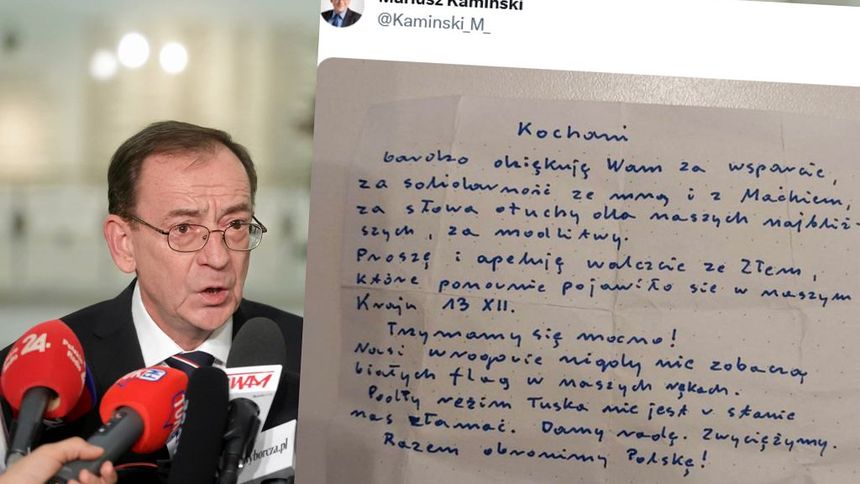 Mariusz Kamiński
@Kaminski_M_
Kochani
bardzo dziękuję Wam za wsparcie,
za solidarność ze mną i z Maćkiem,
za słowa otuchy dla naszych najbliż-
szych, za modlitwy.
Proszę i apeluję walczcie ze Złem,
które ponownie pojawiło się w naszym
Kraju 13 XII.
Trzymamy się mocno!
Nasi wrogowie nigdy nie zobaczą
białych flag w naszych rękach.
Podły reżim Tuska nie jest w stanie
nas złamać. Damy radę. Zwyciężymy.
Razem obronimy Polskę!
24
WAM
yborcza.pl